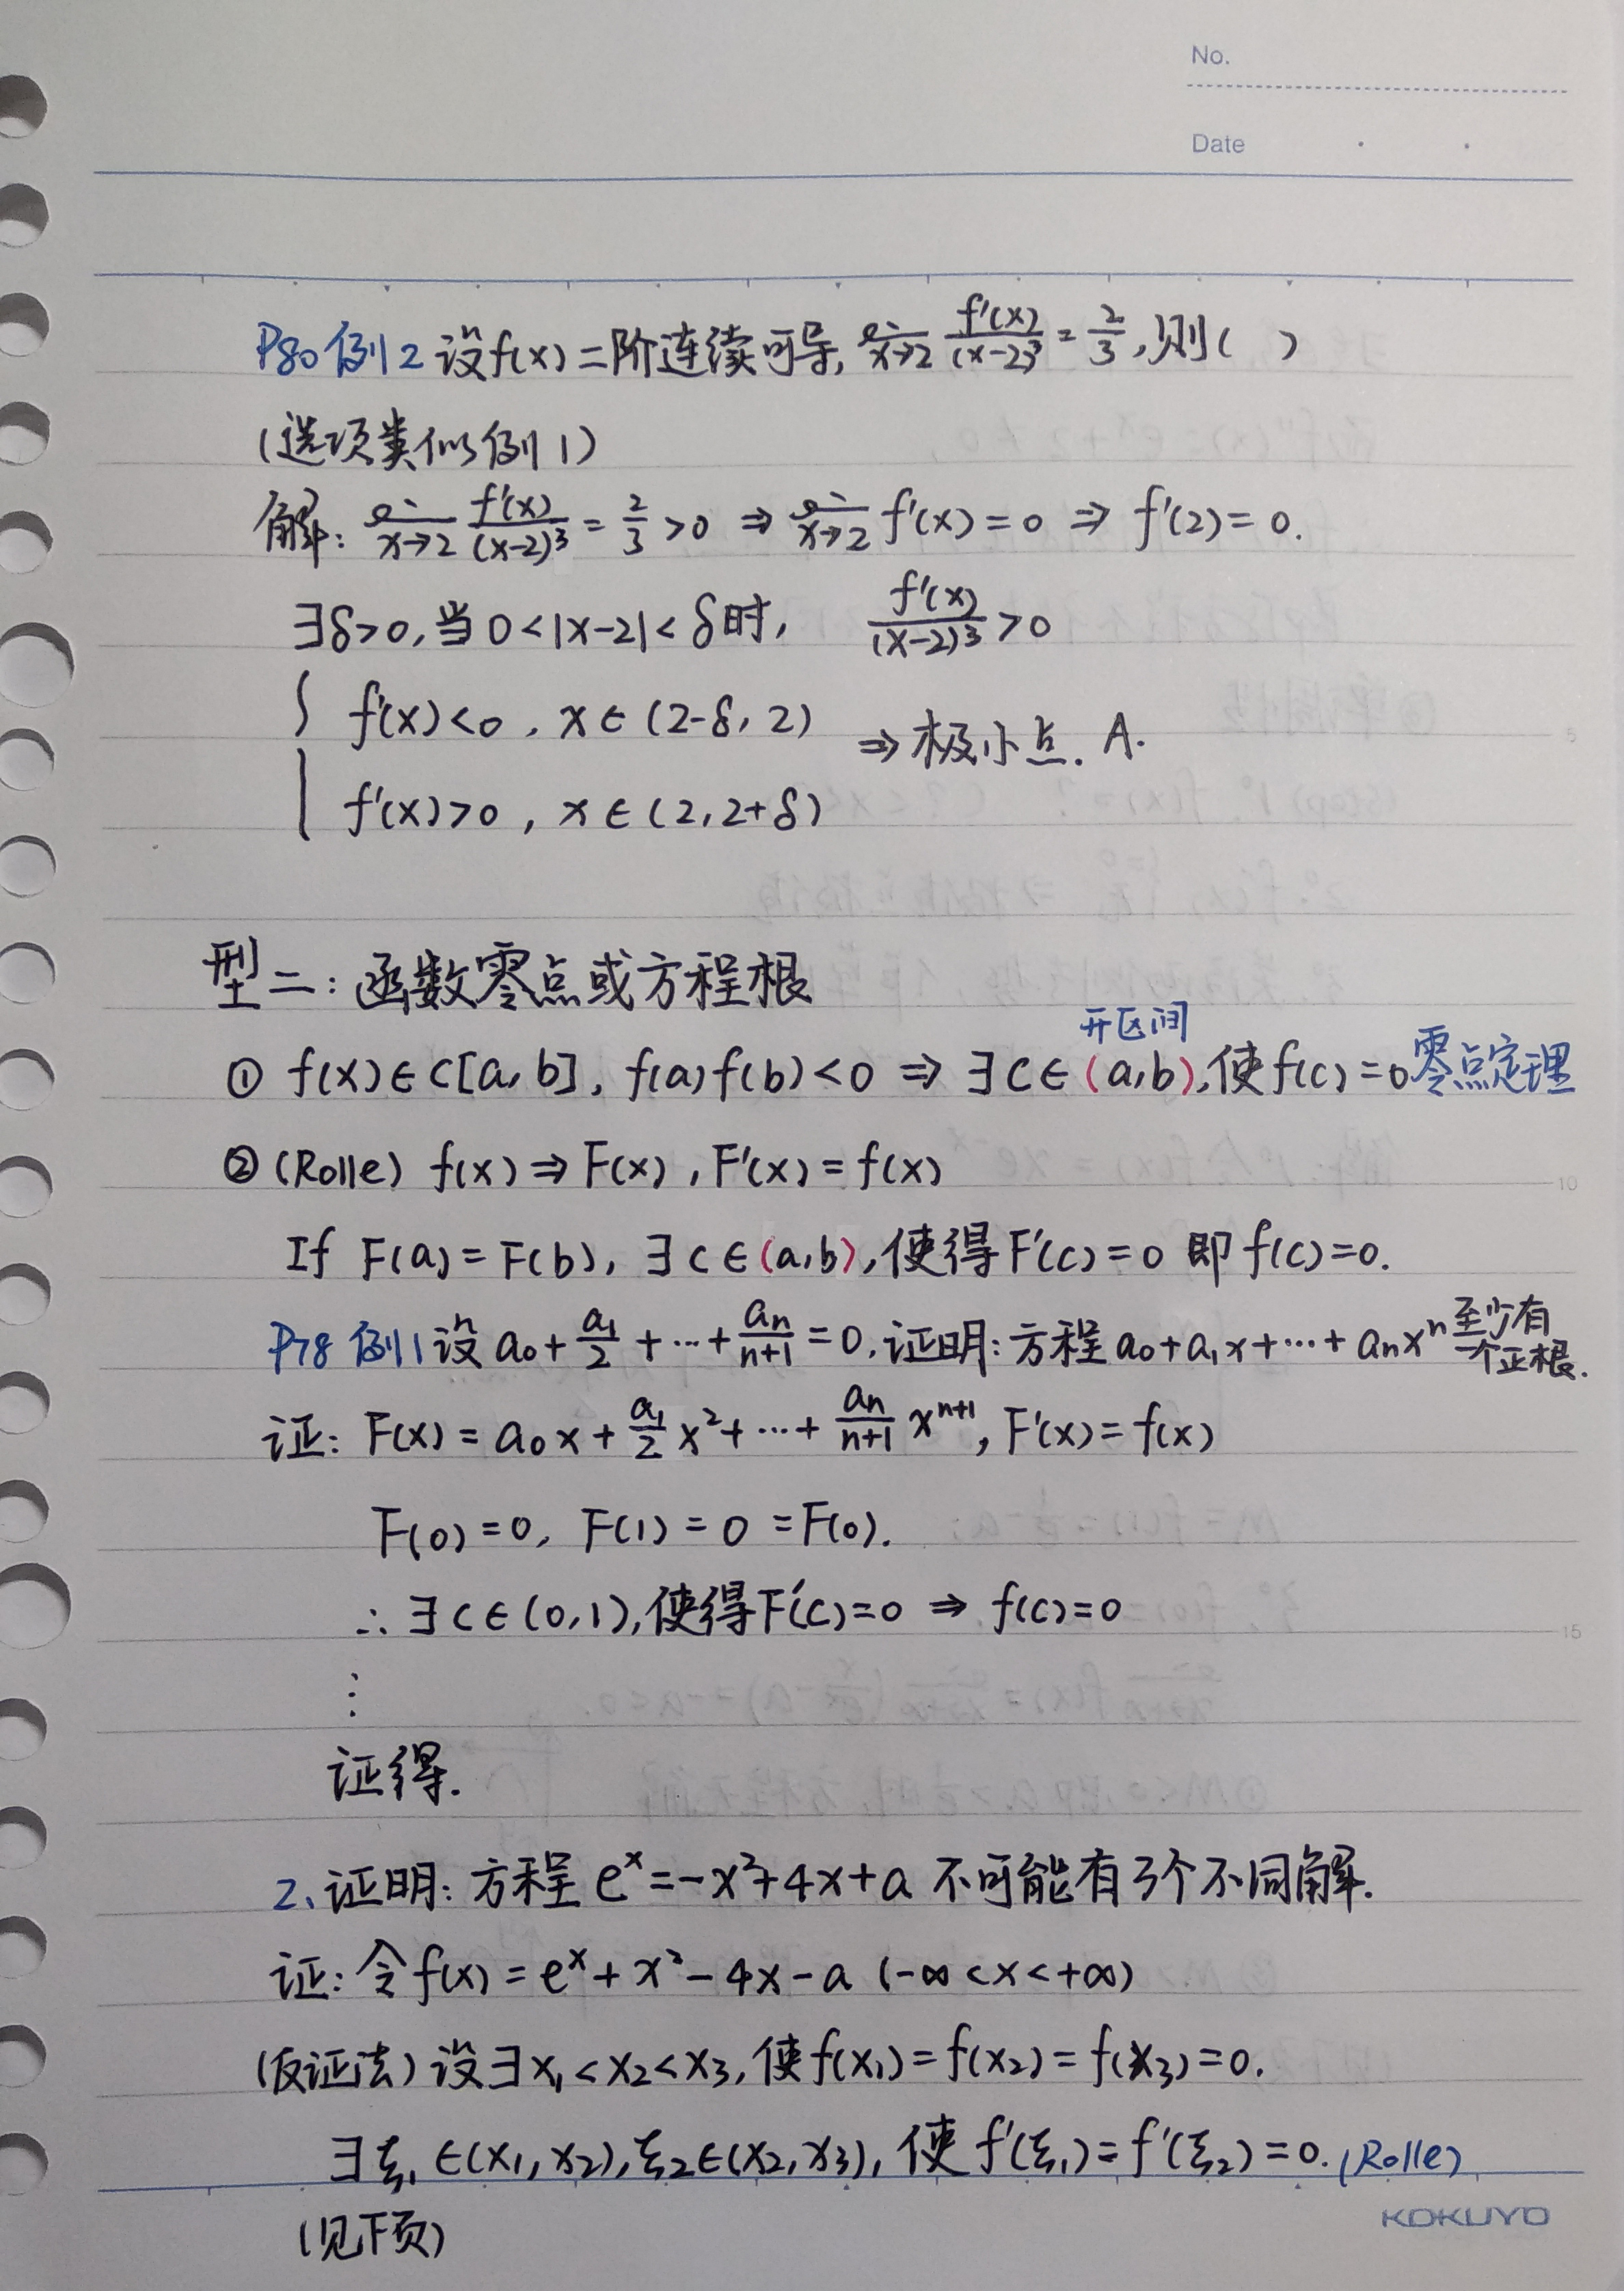 No.
Date
P80 例2 设f(x)二阶连续可导, lim_{x→2} f'(x)/(x-2)³ = 2/3, 则( )
(选项类似例1)
解: lim_{x→2} f'(x)/(x-2)³ = 2/3 >0 ⇒ lim_{x→2} f'(x)=0 ⇒ f'(2)=0.
∃δ>0, 当0<|x-2|<δ时, f'(x)/(x-2)³ >0
{ f'(x)<0, x∈(2-δ, 2)
⇒极小点. A.
f'(x)>0, x∈(2, 2+δ)
型二: 函数零点或方程根
开区间
① f(x)∈C[a, b], f(a)f(b)<0 ⇒ ∃c∈(a,b), 使f(c)=0 零点定理
② (Rolle) f(x)⇒F(x), F'(x)=f(x)
If F(a)=F(b), ∃c∈(a,b), 使得F'(c)=0 即f(c)=0.
P78 例1 设 a₀+a₁/2+⋯+aₙ/(n+1)=0, 证明: 方程a₀+a₁x+⋯+aₙxⁿ至少有一个正根.
证: F(x)=a₀x+a₁/2 x²+⋯+aₙ/(n+1) xⁿ⁺¹, F'(x)=f(x)
F(0)=0, F(1)=0=F(0).
∴∃c∈(0,1), 使得F'(c)=0 ⇒ f(c)=0
⋮
证得.
2、证明: 方程eˣ=-x²+4x+a 不可能有3个不同解.
证: 令f(x)=eˣ+x²-4x-a (-∞<x<+∞)
(反证法) 设∃x₁<x₂<x₃, 使f(x₁)=f(x₂)=f(x₃)=0.
∃ξ₁∈(x₁,x₂), ξ₂∈(x₂,x₃), 使f'(ξ₁)=f'(ξ₂)=0. (Rolle)
(见下页)
5
10
15
KOKUYO